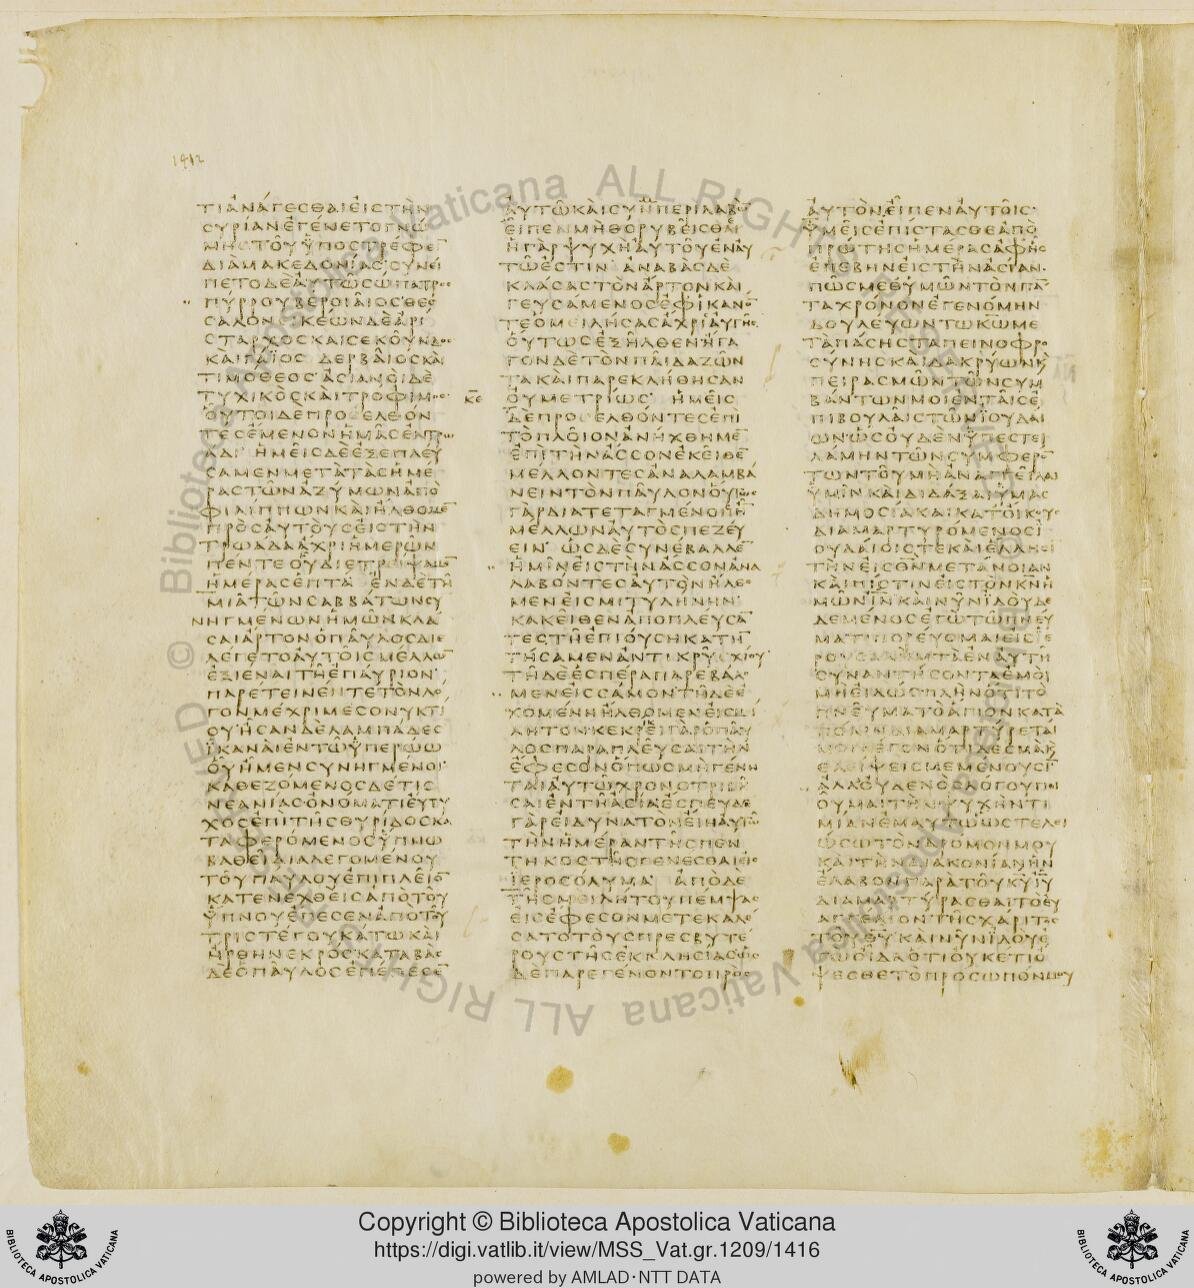 1412
ΤΙΑΝΑΓΕΣΘΑΙΕΙΣΤΗΝ
ΣΥΡΙΑΝΕΓΕΝΕΤΟΓΝΩ
ΜΗΣΤΟΥΥΠΟΣΤΡΕΦΕΙ̅
ΔΙΑΜΑΚΕΔΟΝΙΑΣΣΥΝΕΙ
ΠΕΤΟΔΕΑΥΤΩΣΩΠΑΤΡΟΣ
ΠΥΡΡΟΥΒΕΡΟΙΑΙΟΣΘΕΣ
ΣΑΛΟΝΕΙΚΕΩΝΔΕΑΡΙ
ΣΤΑΡΧΟΣΚΑΙΣΕΚΟΥΝΔΟΣ
ΚΑΙΓΑΙΟΣ ΔΕΡΒΑΙΟΣΚΑΙ
ΤΙΜΟΘΕΟΣ ΑΣΙΑΝΟΙΔΕ
ΤΥΧΙΚΟΣΚΑΙΤΡΟΦΙΜΟΣ
ΟΥΤΟΙΔΕΠΡΟΣΕΛΘΟΝ
ΤΕΣΕΜΕΝΟΝΗΜΑΣΕΝΤΡΩ
ΑΔΙ ΗΜΕΙΣΔΕΕΞΕΠΛΕΥ
ΣΑΜΕΝΜΕΤΑΤΑΣΗΜΕ
ΡΑΣΤΩΝΑΖΥΜΩΝΑΠΟ
ΦΙΛΙΠΠΩΝΚΑΙΗΛΘΟΜΕ̅
ΠΡΟΣΑΥΤΟΥΣΕΙΣΤΗΝ
ΤΡΩΑΔΑΑΧΡΙΗΜΕΡΩΝ
ΠΕΝΤΕΟΥΔΙΕΤΡΕΙΨΑΜΕ̅
ΗΜΕΡΑΣΕΠΤΑ ΕΝΔΕΤΗ
ΜΙΑΤΩΝΣΑΒΒΑΤΩΝΣΥ
ΝΗΓΜΕΝΩΝΗΜΩΝΚΛΑ
ΣΑΙΑΡΤΟΝΟΠΑΥΛΟΣΔΙΕ
ΛΕΓΕΤΟΑΥΤΟΙΣΜΕΛΛΩ̅
ΕΞΙΕΝΑΙΤΗΕΠΑΥΡΙΟΝ
ΠΑΡΕΤΕΙΝΕΝΤΕΤΟΝΛΟ
ΓΟΝΜΕΧΡΙΜΕΣΟΝΥΚΤΙ
ΟΥΗΣΑΝΔΕΛΑΜΠΑΔΕΣ
ΙΚΑΝΑΙΕΝΤΩΥΠΕΡΩΩ
ΟΥΗΜΕΝΣΥΝΗΓΜΕΝΟΙ
ΚΑΘΕΖΟΜΕΝΟΣΔΕΤΙΣ
ΝΕΑΝΙΑΣΟΝΟΜΑΤΙΕΥΤΥ
ΧΟΣΕΠΙΤΗΣΘΥΡΙΔΟΣΚΑ
ΤΑΦΕΡΟΜΕΝΟΣΥΠΝΩ
ΒΑΘΕΙΔΙΑΛΕΓΟΜΕΝΟΥ
ΤΟΥΠΑΥΛΟΥΕΠΙΠΛΕΙΟ̅
ΚΑΤΕΝΕΧΘΕΙΣΑΠΟΤΟΥ
ΥΠΝΟΥΕΠΕΣΕΝΑΠΟΤΟΥ
ΤΡΙΣΤΕΓΟΥΚΑΤΩΚΑΙ
ΗΡΘΗΝΕΚΡΟΣΚΑΤΑΒΑΣ
ΔΕΟΠΑΥΛΟΣΕΠΕΠΕΣΕ̅
ΑΥΤΩΚΑΙΣΥΝΠΕΡΙΛΑΒΩ̅
ΕΙΠΕΝΜΗΘΟΡΥΒΕΙΣΘΑΙ
ΗΓΑΡΨΥΧΗΑΥΤΟΥΕΝΑΥ
ΤΩΕΣΤΙΝ ΑΝΑΒΑΣΔΕ
ΚΛΑΣΑΣΤΟΝΑΡΤΟΝΚΑΙ
ΓΕΥΣΑΜΕΝΟΣΕΦΙΚΑΝΟ̅
ΤΕΟΜΕΙΛΗΣΑΣΑΧΡΙΑΥΓΗΣ
ΟΥΤΩΣΕΞΗΛΘΕΝΗΓΑ
ΓΟΝΔΕΤΟΝΠΑΙΔΑΖΩΝ
ΤΑΚΑΙΠΑΡΕΚΛΗΘΗΣΑΝ
Κ̅Ε̅ ΟΥΜΕΤΡΙΩΣ ΗΜΕΙΣ
ΔΕΠΡΟΣΕΛΘΟΝΤΕΣΕΠΙ
ΤΟΠΛΟΙΟΝΑΝΗΧΘΗΜΕ̅
ΕΠΙΤΗΝΑΣΣΟΝΕΚΕΙΘΕ̅
ΜΕΛΛΟΝΤΕΣΑΝΑΛΑΜΒΑ
ΝΕΙΝΤΟΝΠΑΥΛΟΝΟΥΤΩΣ
ΓΑΡΔΙΑΤΕΤΑΓΜΕΝΟΣΗ̅
ΜΕΛΛΩΝΑΥΤΟΣΠΕΖΕΥ
ΕΙΝ ΩΣΔΕΣΥΝΕΒΑΛΛΕ̅
ΗΜΙΝΕΙΣΤΗΝΑΣΣΟΝΑΝΑ
ΛΑΒΟΝΤΕΣΑΥΤΟΝΗΛΘΟ
ΜΕΝΕΙΣΜΙΤΥΛΗΝΗΝ
ΚΑΚΕΙΘΕΝΑΠΟΠΛΕΥΣΑ̅
ΤΕΣΤΗΕΠΙΟΥΣΗΚΑΤΗ̅
ΤΗΣΑΜΕΝΑΝΤΙΚΡΥΣΧΙΟΥ
ΤΗΔΕΕΣΠΕΡΑΠΑΡΕΒΑΛΟ
ΜΕΝΕΙΣΣΑΜΟΝΤΗΔΕΕ
ΧΟΜΕΝΗΗΛΘΟΜΕΝΕΙΣΜΙ
ΛΗΤΟΝΚΕΚΡΙΚΕΙΓΑΡΟΠΑΥ
ΛΟΣΠΑΡΑΠΛΕΥΣΑΙΤΗΝ
ΕΦΕΣΟΝΟΠΩΣΜΗΓΕΝΗ
ΤΑΙΑΥΤΩΧΡΟΝΟΤΡΙΒΗ
ΣΑΙΕΝΤΗΑΣΙΑΕΣΠΕΥΔΕ
ΓΑΡΕΙΔΥΝΑΤΟΝΕΙΗΑΥΤΩ
ΤΗΝΗΜΕΡΑΝΤΗΣΠΕΝ
ΤΗΚΟΣΤΗΣΓΕΝΕΣΘΑΙΕΙΣ
ΙΕΡΟΣΟΛΥΜΑ ΑΠΟΔΕ
ΤΗΣΜΕΙΛΗΤΟΥΠΕΜΨΑΣ
ΕΙΣΕΦΕΣΟΝΜΕΤΕΚΑΛΕ
ΣΑΤΟΤΟΥΣΠΡΕΣΒΥΤΕ
ΡΟΥΣΤΗΣΕΚΚΛΗΣΙΑΣΩΣ
ΔΕΠΑΡΕΓΕΝΟΝΤΟΠΡΟΣ
ΑΥΤΟΝΕΙΠΕΝΑΥΤΟΙΣ
ΥΜΕΙΣΕΠΙΣΤΑΣΘΕΑΠΟ
ΠΡΩΤΗΣΗΜΕΡΑΣΑΦΗΣ
ΕΠΕΒΗΝΕΙΣΤΗΝΑΣΙΑΝ
ΠΩΣΜΕΘΥΜΩΝΤΟΝΠΑ̅
ΤΑΧΡΟΝΟΝΕΓΕΝΟΜΗΝ
ΔΟΥΛΕΥΩΝΤΩΚ̅Ω̅ΜΕ
ΤΑΠΑΣΗΣΤΑΠΕΙΝΟΦΡΟ
ΣΥΝΗΣΚΑΙΔΑΚΡΥΩΝΚΑΙ
ΠΕΙΡΑΣΜΩΝΤΩΝΣΥΜ
ΒΑΝΤΩΝΜΟΙΕΝΤΑΙΣΕ
ΠΙΒΟΥΛΑΙΣΤΩΝΙΟΥΔΑΙ
ΩΝΩΣΟΥΔΕΝΥΠΕΣΤΕΙ
ΛΑΜΗΝΤΩΝΣΥΜΦΕΡΟ̅
ΤΩΝΤΟΥΜΗΑΝΑΓΓΕΙΛΑΙ
ΥΜΙΝΚΑΙΔΙΔΑΞΑΙΥΜΑΣ
ΔΗΜΟΣΙΑΚΑΙΚΑΤΟΙΚΟΥΣ
ΔΙΑΜΑΡΤΥΡΟΜΕΝΟΣΙ
ΟΥΔΑΙΟΙΣΤΕΚΑΙΕΛΛΗΣΙ
ΤΗΝΕΙΣΘ̅Ν̅ΜΕΤΑΝΟΙΑΝ
ΚΑΙΠΙΣΤΙΝΕΙΣΤΟΝΚ̅Ν̅Η
ΜΩΝΙ̅Ν̅ΚΑΙΝΥΝΙΔΟΥΔΕ
ΔΕΜΕΝΟΣΕΓΩΤΩΠΝΕΥ
ΜΑΤΙΠΟΡΕΥΟΜΑΙΕΙΣΙΕ
ΡΟΥΣΑΛΗΜΤΑΕΝΑΥΤΗ
ΣΥΝΑΝΤΗΣΟΝΤΑΕΜΟΙ
ΜΗΕΙΔΩΣΠΛΗΝΟΤΙΤΟ
ΠΝΕΥΜΑΤΟΑΓΙΟΝΚΑΤΑ
ΠΟΛΙΝΔΙΑΜΑΡΤΥΡΕΤΑΙ
ΜΟΙΛΕΓΟΝΟΤΙΔΕΣΜΑΚΑΙ
ΘΛΕΙΨΕΙΣΜΕΜΕΝΟΥΣΙ̅
ΑΛΛΟΥΔΕΝΟΣΛΟΓΟΥΠΟΙ
ΟΥΜΑΙΤΗΝΨΥΧΗΝΤΙ
ΜΙΑΝΕΜΑΥΤΩΩΣΤΕΛΕΙ
ΩΣΩΤΟΝΔΡΟΜΟΝΜΟΥ
ΚΑΙΤΗΝΔΙΑΚΟΝΙΑΝΗΝ
ΕΛΑΒΟΝΠΑΡΑΤΟΥΚ̅Υ̅Ι̅Υ̅
ΔΙΑΜΑΡΤΥΡΑΣΘΑΙΤΟΕΥ
ΑΓΓΕΛΙΟΝΤΗΣΧΑΡΙΤΟΣ
ΤΟΥΘ̅Υ̅ΚΑΙΝΥΝΙΔΟΥΕ
ΓΩΟΙΔΑΟΤΙΟΥΚΕΤΙΟ
ΨΕΣΘΕΤΟΠΡΟΣΩΠΟΝΜΟΥ
© Biblioteca Apostolica Vaticana ALL RIGHTS RESERVED
Copyright © Biblioteca Apostolica Vaticana
https://digi.vatlib.it/view/MSS_Vat.gr.1209/1416
powered by AMLAD·NTT DATA
BIBLIOTECA APOSTOLICA VATICANA
BIBLIOTECA APOSTOLICA VATICANA